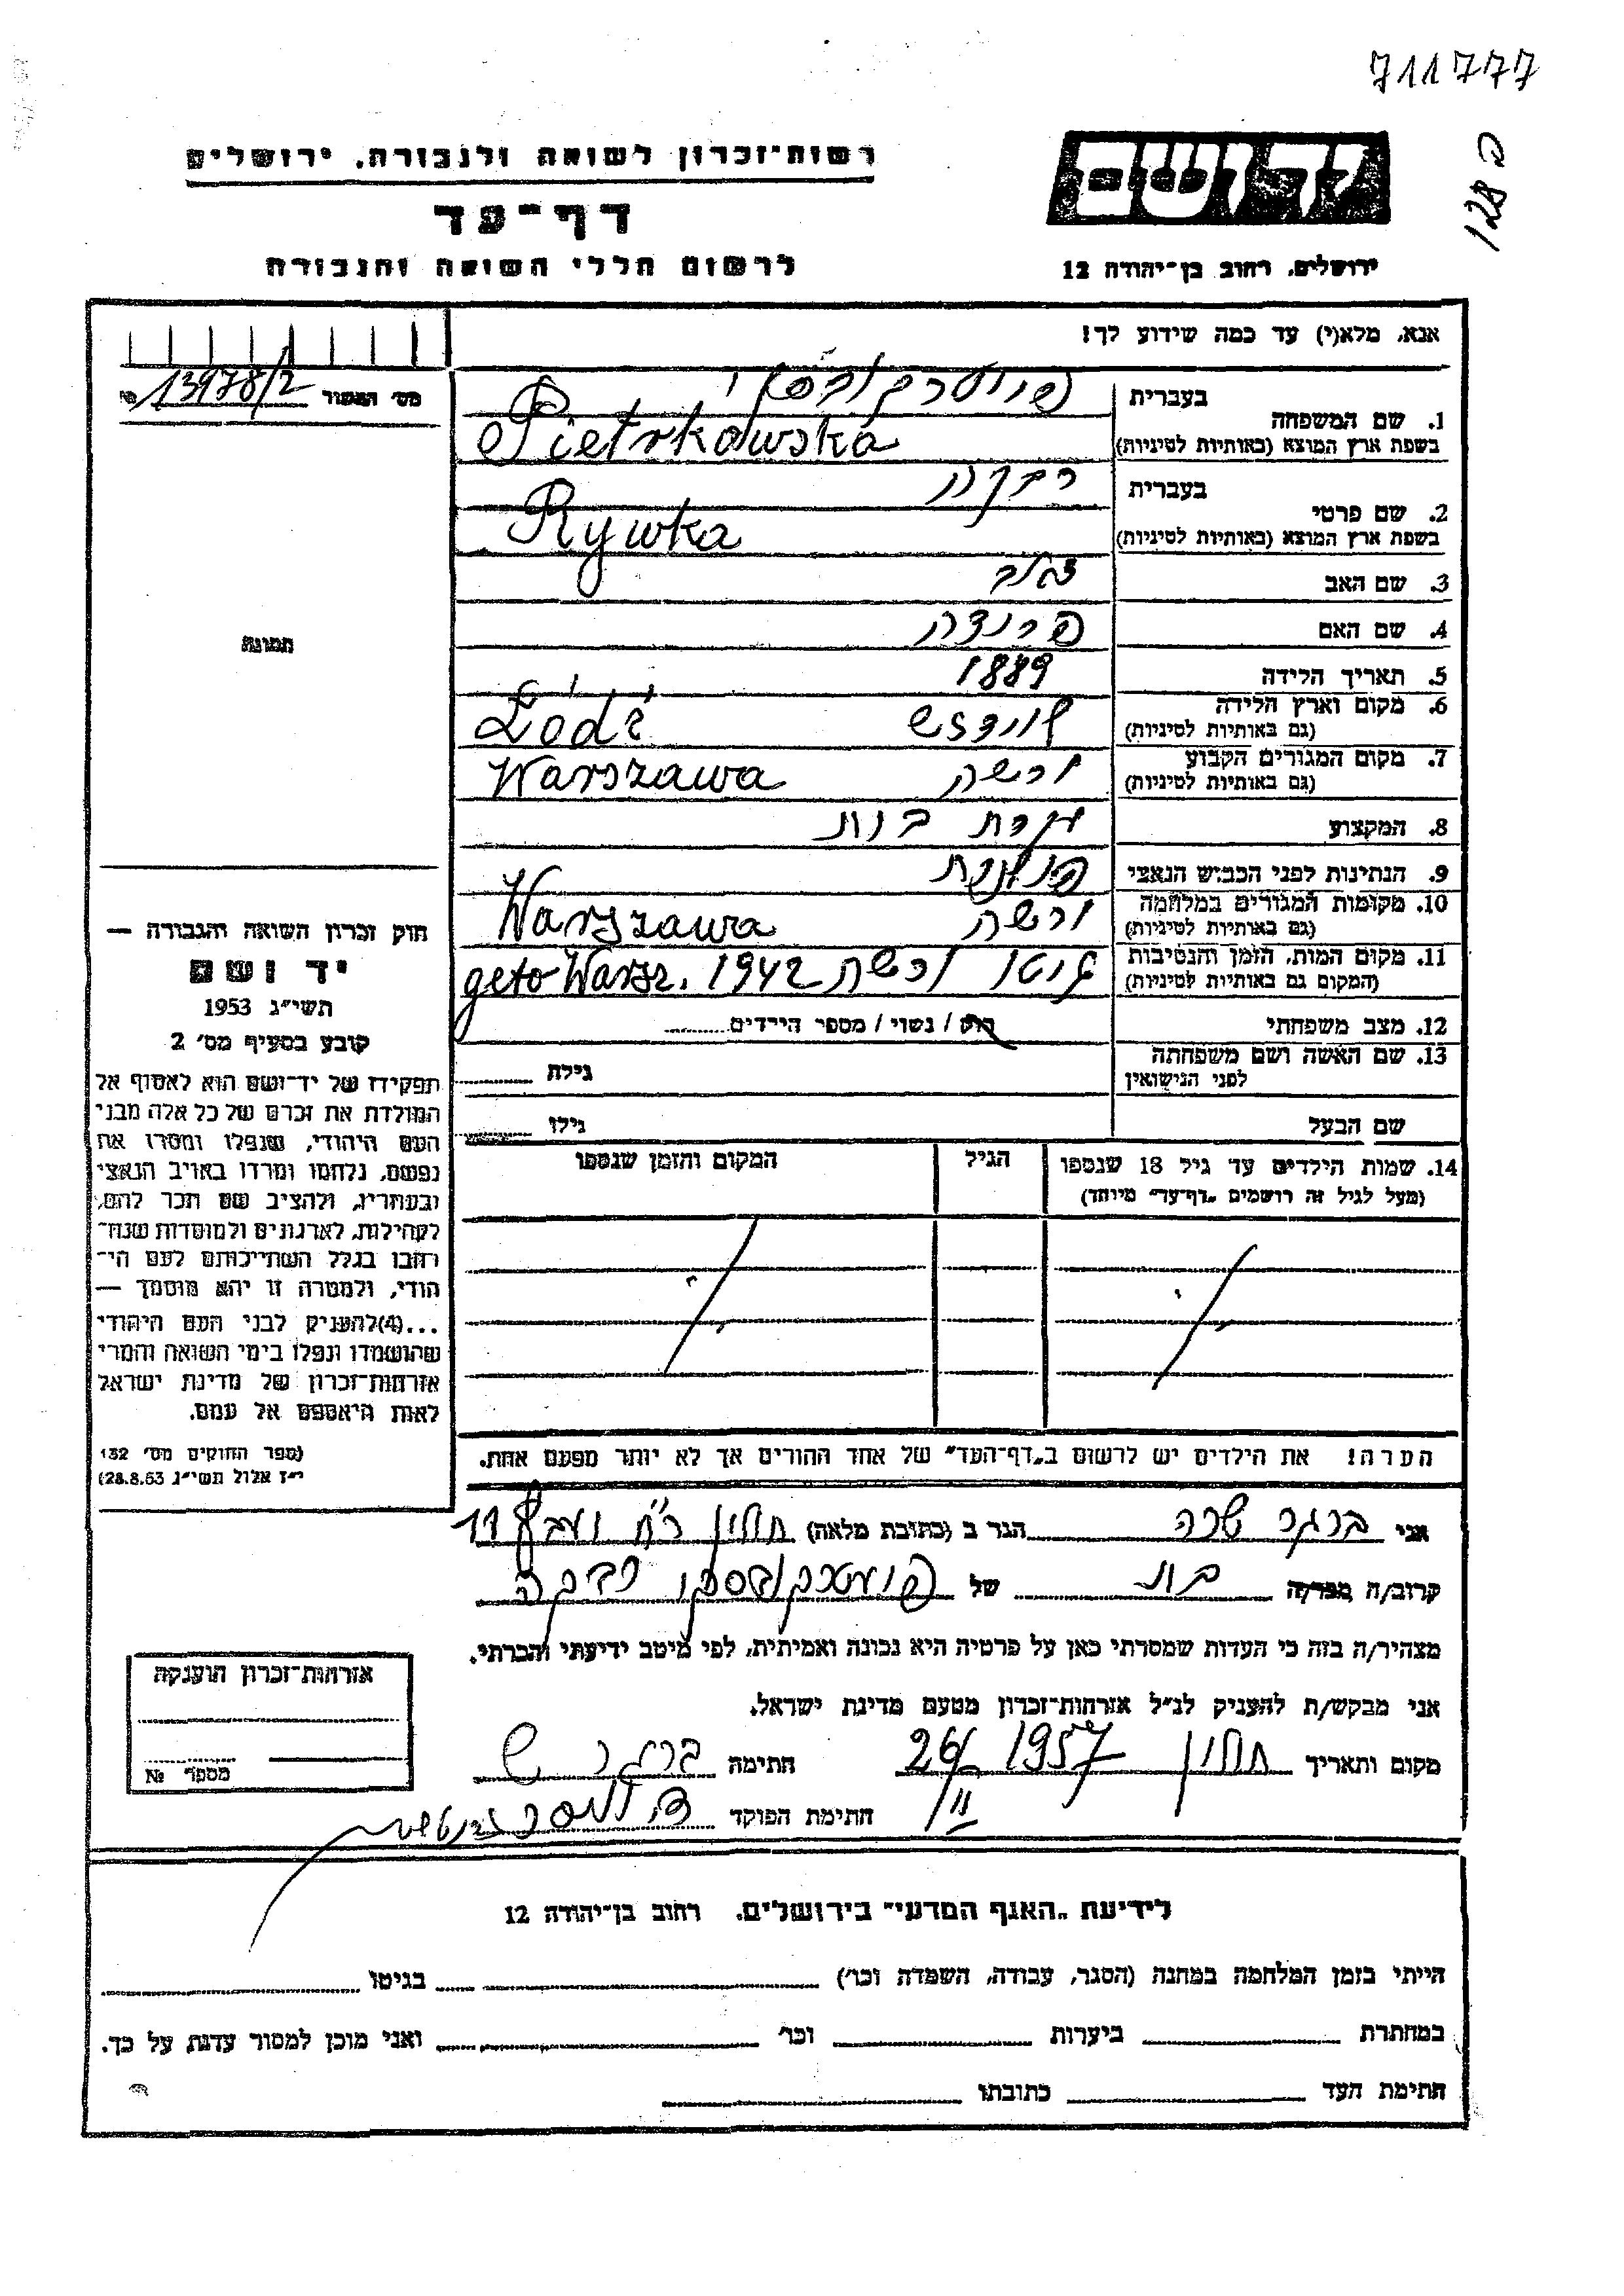 711777
128 כ
יד ושם
ירושלים, רחוב בן־יהודה 12
רשות־זכרון לשואה ולגבורה, ירושלים
דף־עד
לרשום חללי השואה והגבורה
אנא, מלא(י) עד כמה שידוע לך!
מס׳ המשור 13978/2 №
תמונה
1. שם המשפחה
בעברית פיוטרקובסקי
בשפת ארץ המוצא (באותיות לטיניות) Pietrkowska
2. שם פרטי
בעברית רבקה
בשפת ארץ המוצא (באותיות לטיניות) Rywka
3. שם האב
4. שם האם
5. תאריך הלידה 1889
6. מקום וארץ הלידה לודז Łódź
(גם באותיות לטיניות)
7. מקום המגורים הקבוע ורשה Warszawa
(גם באותיות לטיניות)
8. המקצוע עקרת בית
9. הנתינות לפני הכבוש הנאצי פולנית
10. מקומות המגורים במלחמה ורשה Warszawa
(גם באותיות לטיניות)
11. מקום המות, הזמן והנסיבות גיטו ורשה 1942 geto Warsz.
(המקום גם באותיות לטיניות)
12. מצב משפחתי רוק / נשוי / מספר הילדים
13. שם האשה ושם משפחתה
לפני הנישואין
גילה
שם הבעל
גילו
14. שמות הילדים עד גיל 18 שנספו
(מעל לגיל זה רושמים „דף־עד״ מיוחד)
הגיל
המקום והזמן שנספו
הערה! את הילדים יש לרשום ב„דף־העד״ של אחד ההורים אך לא יותר מפעם אחת.
חוק זכרון השואה והגבורה —
יד ושם
תשי״ג 1953
קובע בסעיף מס׳ 2
תפקידו של יד־ושם הוא לאסוף אל
המולדת את זכרם של כל אלה מבני
העם היהודי, שנפלו ומסרו את
נפשם, נלחמו ומרדו באויב הנאצי
ובעוזריו, ולהציב שם וזכר להם,
לקהילות, לארגונים ולמוסדות שנח־
רבו בגלל השתייכותם לעם הי־
הודי, ולמטרה זו יהא מוסמך —
...(4)להעניק לבני העם היהודי
שהושמדו ונפלו בימי השואה והמרי
אזרחות־זכרון של מדינת ישראל
לאות היאספם אל עמם.
(ספר החוקים מס׳ 132
י״ז אלול תשי״ג 28.8.53)
אני ברגר שרה הגר ב (כתובת מלאה) חולון 11
קרוב/ה מכר/ה בת של פיוטרקובסקי רבקה
מצהיר/ה בזה כי העדות שמסרתי כאן על פרטיה היא נכונה ואמיתית, לפי מיטב ידיעתי והכרתי.
אני מבקש/ת להעניק לנ״ל אזרחות־זכרון מטעם מדינת ישראל.
מקום ותאריך חולון 1957 26/II חתימה ברגר ש
חתימת הפוקד
אזרחות־זכרון הוענקה
מספר №
לידיעת „האגף המדעי״ בירושלים, רחוב בן־יהודה 12
הייתי בזמן המלחמה במחנה (הסגר, עבודה, השמדה וכו׳) בגיטו
במחתרת ביערות וכו׳ ואני מוכן למסור עדות על כך.
חתימת העד כתובתו